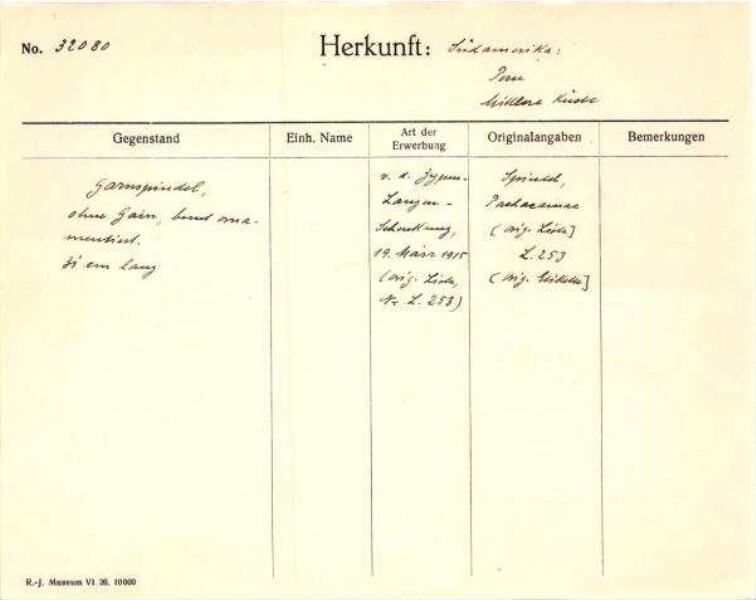 No. 32080
Herkunft: Südamerika:
Peru
Mittlere Küste
Gegenstand
Einh. Name
Art der
Erwerbung
Originalangaben
Bemerkungen
Garnspindel,
ohne Garn, bunt orna-
mentiert.
cm lang
v. d. Zypen-
Langen-
Schenkung,
19. März 1915
(orig. Liste,
Nr. L. 253)
Spindel,
Pachacamac
(orig. Liste]
L. 253
(orig. Etikette]
R.-J. Museum VI. 26. 10000